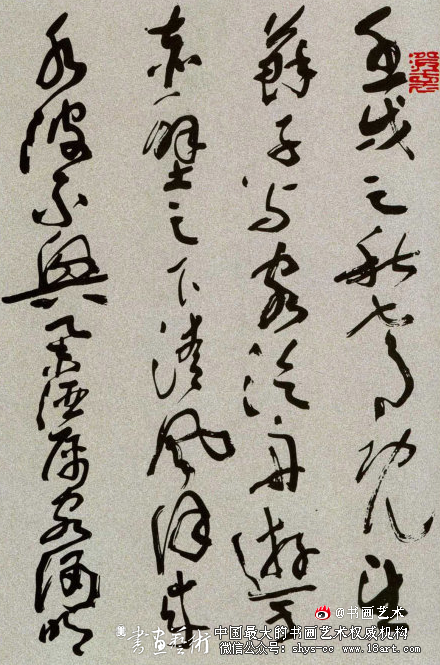 壬戌之秋七月既望
蘇子与客泛舟遊于
赤壁之下清風徐來
水波不興舉酒属客誦明
@书画艺术
書畫藝術 中国最大的书画艺术权威机构
微信公众号：shys-cc www.18art.com